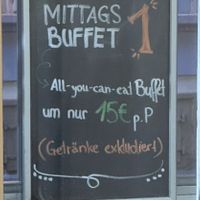 MITTAGS
BUFFET 1
All-you-can-eat Buffet
um nur 15€ p.P
(Getränke exkludiert)